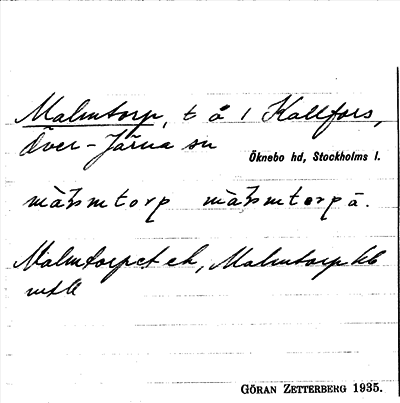 Malmtorp, t å 1 Kallfors,
Över-Järna sn
Öknebo hd, Stockholms l.
màl̄mtorp màl̄mtorpā.
Malmtorpet ek, Malmtorp kb
mtll
GÖRAN ZETTERBERG 1935.